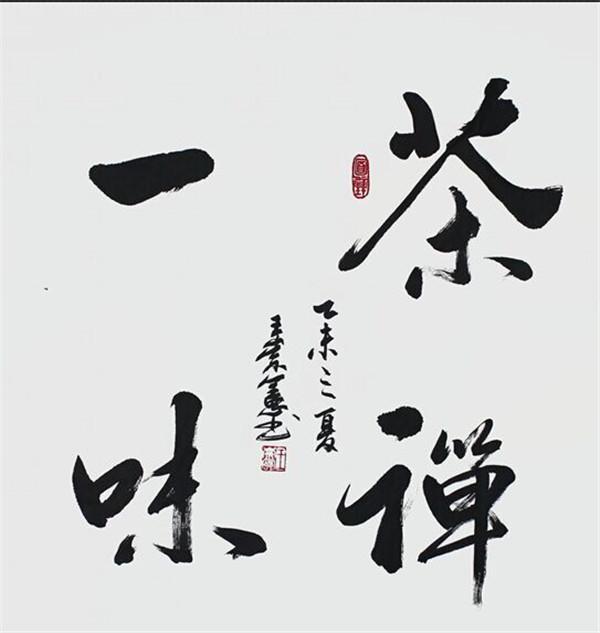 茶禅
一味
乙未之夏